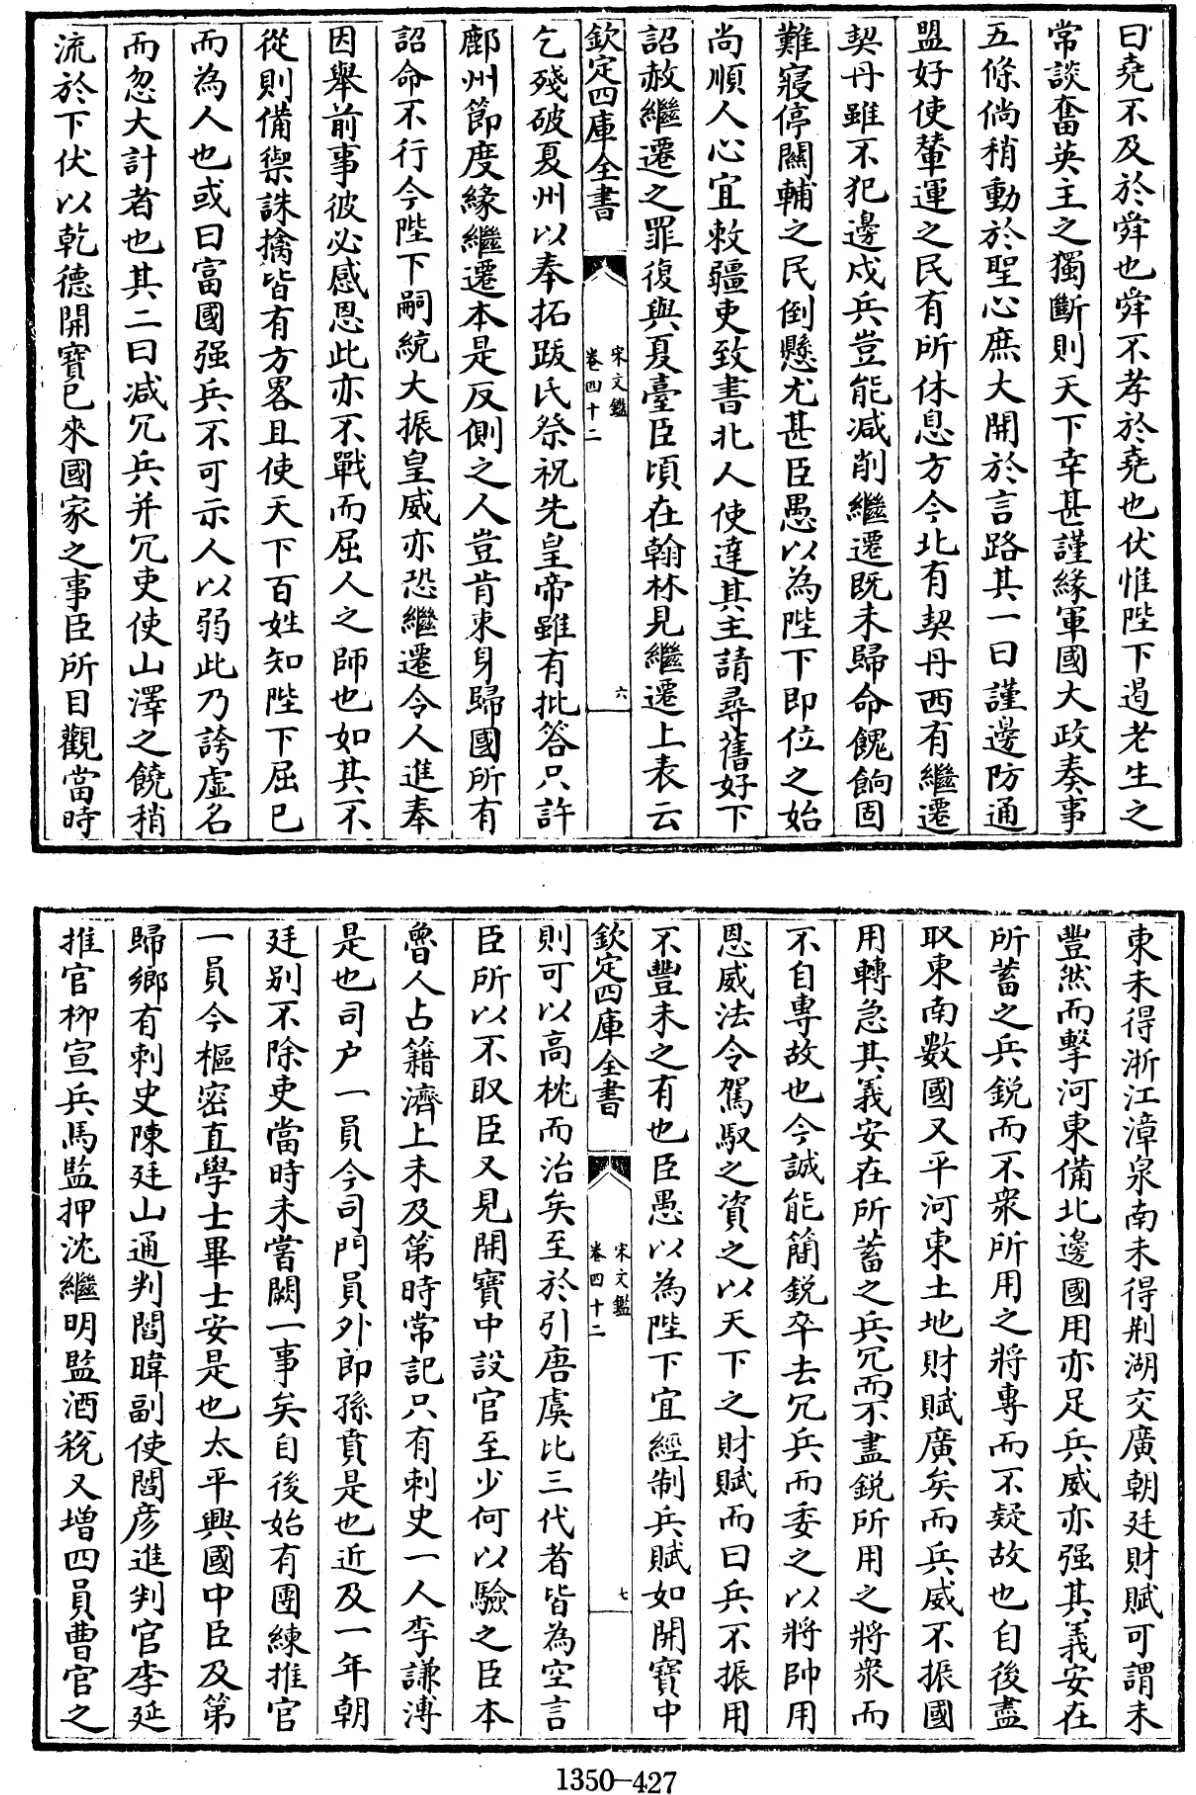 曰堯不及於舜也舜不孝於堯也伏惟陛下遏老生之
常談奮英主之獨斷則天下幸甚謹緣軍國大政奏事
五條倘稍動於聖心庶大開於言路其一曰謹邊防通
盟好使輦運之民有所休息方今北有契丹西有繼遷
契丹雖不犯邊戍兵豈能减削繼遷既未歸命餽餉固
難寢停關輔之民倒懸尤甚臣愚以為陛下即位之始
尚順人心宜敕疆吏致書北人使達其主請尋舊好下
詔赦繼遷之罪復與夏臺臣頃在翰林見繼遷上表云
欽定四庫全書
宋文鑑
卷四十二
六
乞殘破夏州以奉拓跋氏祭祝先皇帝雖有批答只許
鄜州節度緣繼遷本是反側之人豈肯束身歸國所有
詔命不行今陛下嗣統大振皇威亦恐繼遷令人進奉
因舉前事彼必感恩此亦不戰而屈人之師也如其不
從則備禦誅擒皆有方畧且使天下百姓知陛下屈已
而為人也或曰富國强兵不可示人以弱此乃誇虛名
而忽大計者也其二曰减冗兵并冗吏使山澤之饒稍
流於下伏以乾德開寶已來國家之事臣所目觀當時
東未得浙江漳泉南未得荆湖交廣朝廷財賦可謂未
豐然而擊河東備北邊國用亦足兵威亦强其義安在
所蓄之兵鋭而不衆所用之將專而不疑故也自後盡
取東南數國又平河東土地財賦廣矣而兵威不振國
用轉急其義安在所蓄之兵冗而不盡鋭所用之將衆而
不自專故也今誠能簡鋭卒去冗兵而委之以將帥用
恩威法令駕馭之資之以天下之財賦而曰兵不振用
不豐未之有也臣愚以為陛下宜經制兵賦如開寶中
欽定四庫全書
宋文鑑
卷四十二
七
則可以高枕而治矣至於引唐虞比三代者皆為空言
臣所以不取臣又見開寶中設官至少何以驗之臣本
魯人占籍濟上未及第時常記只有刺史一人李謙溥
是也司户一員今司門員外郎孫賁是也近及一年朝
廷别不除吏當時未嘗闕一事矣自後始有團練推官
一員今樞密直學士畢士安是也太平興國中臣及第
歸鄉有刺史陳廷山通判閻暐副使閻彦進判官李延
推官柳宣兵馬監押沈繼明監酒稅又增四員曹官之
1350-427